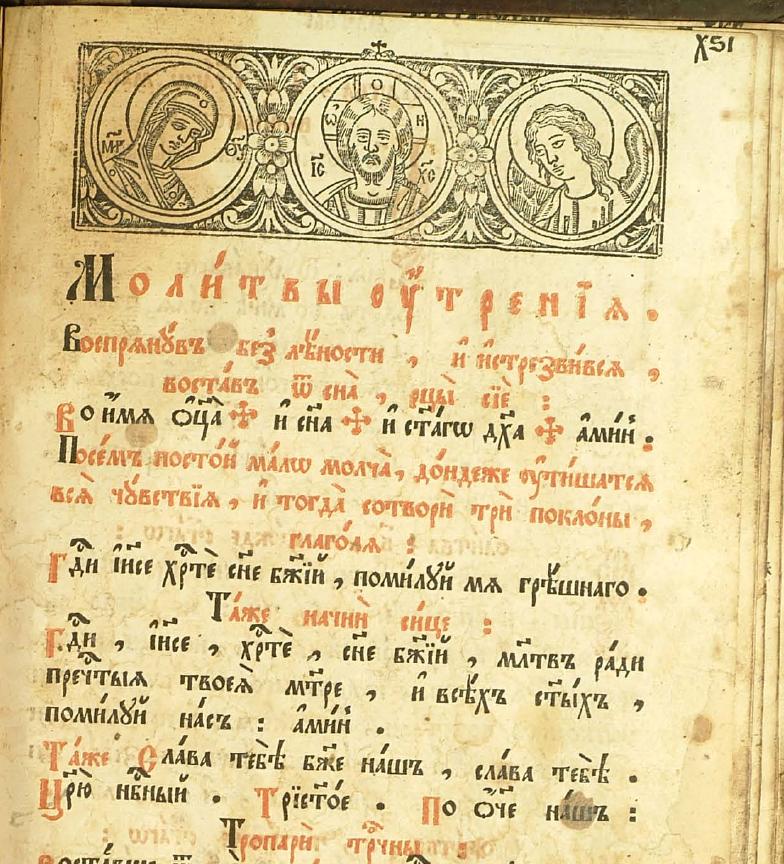 х҃ѕі
М҃Р Ѳ҃У Ѡ О Н І҃С Х҃С
Моли́твы оу҆́трєнїѧ .
Воспрѧнꙋ́въ без̾ лѣ́ности , и҆ и҆стрезви́всѧ ,
воста́въ ѿ сна̀ , рцы̀ сїѐ :
Во и҆́мѧ ѻ҆ц҃а̀ ✠ и҆ сн҃а ✠ и҆ ст҃а́гѡ дх҃а ✠ а҆ми́нь .
Посе́мъ посто́й ма́лѡ молча̀ , до́ндеже оу҆ти́шатсѧ
всѧ̑ чꙋ̑вствїѧ , и҆ тогда̀ сотворѝ трѝ покло́ны ,
глаго́лѧ :
Гдⷭ҇и і҆и҃се хрⷭ҇тѐ сн҃е бж҃їй , поми́лꙋй мѧ грѣ́шнаго .
Та́же начнѝ си́це :
Гдⷭ҇и , і҆и҃се , хрⷭ҇тѐ , сн҃е бж҃їй , мл҃твъ ра́ди
пречⷭ҇тыѧ твоеѧ̀ мт҃ре , и҆ всѣ́хъ ст҃ы́хъ ,
поми́лꙋй на́съ : а҆ми́нь .
Та́же Сла́ва тебѣ̀ бж҃е на́шъ , сла́ва тебѣ̀ .
Цр҃ю̀ нбⷭ҇ный . Трист҃о́е . По ѻ҆́ч҃е на́шъ :
Тропарѝ трⷪ҇чны :